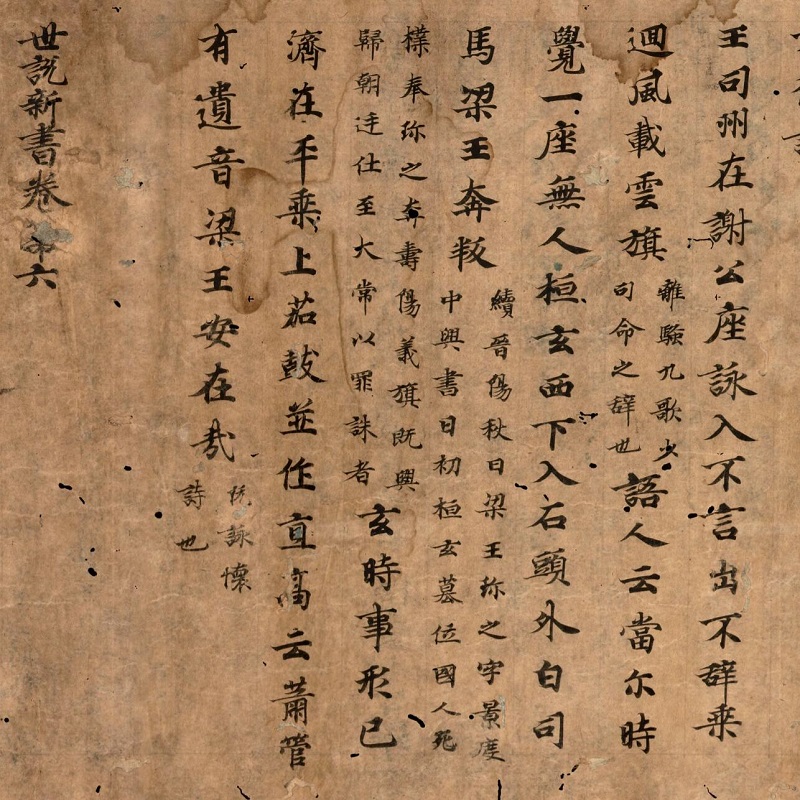 王司州在謝公座詠入不言出不辞乘
迴風載雲旗
離騷九歌少
司命之辞也
語人云當尓時
覺一座無人桓玄西下入石頭外白司
馬梁王奔叛
續晉陽秋曰梁王珎之字景度
中興書曰初桓玄墓位國人死
樸奉珎之奔壽陽義旗既興
歸朝廷仕至大常以罪誅者
玄時事形已
濟在平乘上茄鼓並作直高云蕭管
有遺音梁王安在哉
阮詠懷
詩也
世說新書卷弟六